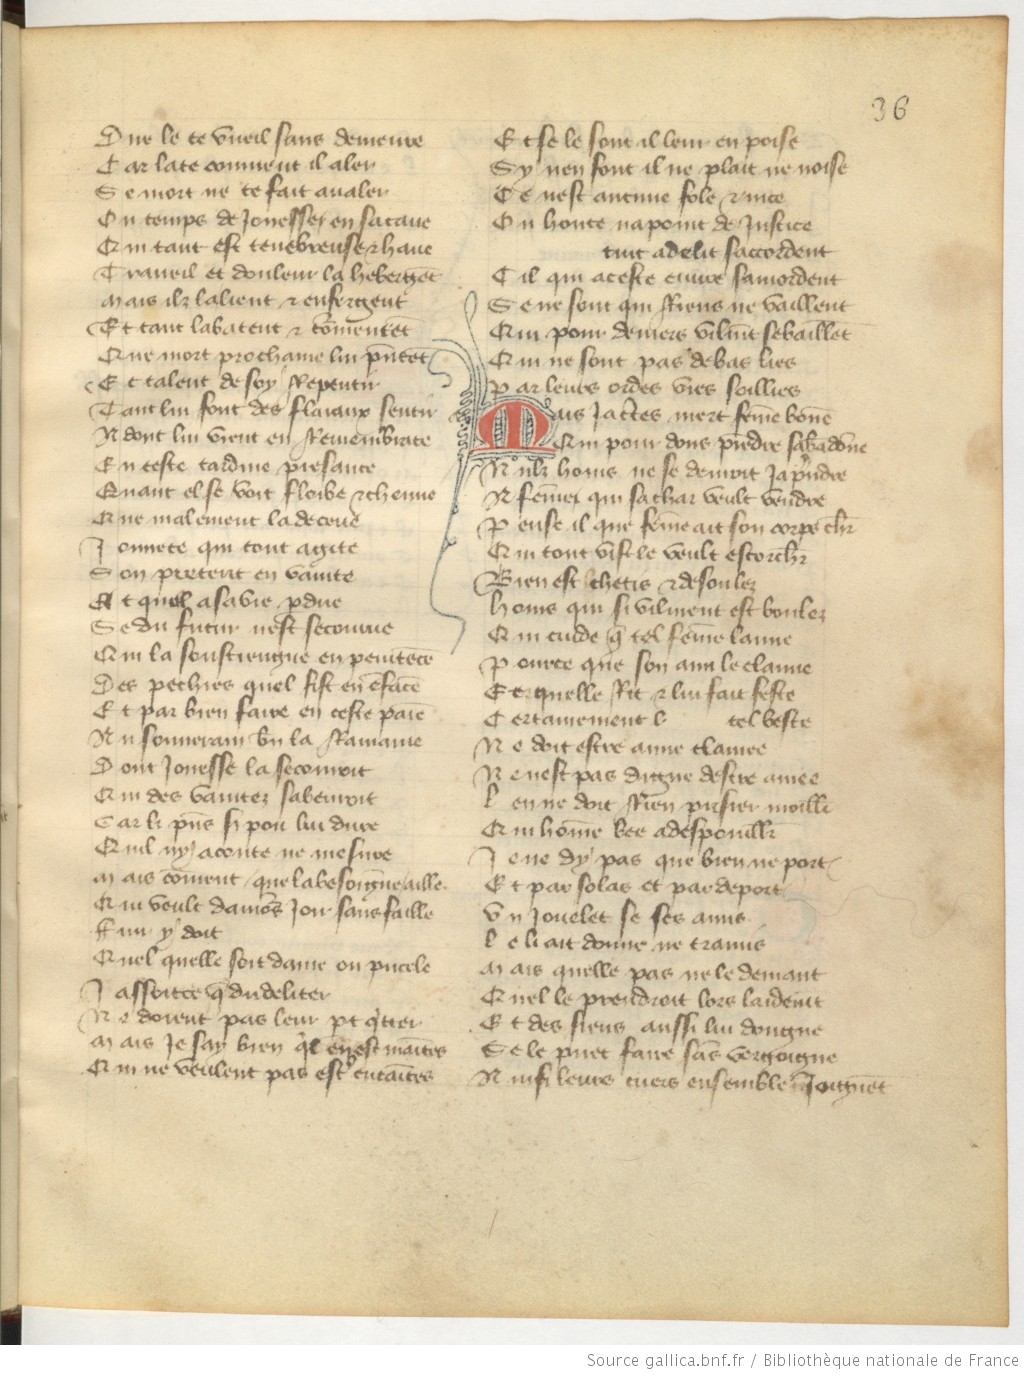 36
Que le te vueil sans demeure
Car la te convient il aler
Se mort ne te fait avaler
On temps de Jonesse en sa cave
Qui tant est tenebreuse & have
Traveil et douleur la hebergēt
Mais ilz lalient & enfergent
Et tant labatent & tōmentēt
Que mort prochaine lui p̄ntēt
Et talent de soy Repentir
Tant lui font des flaiaux sentir
Adont lui vient en Remembrāce
En ceste tardive presance
Quant el se voit floibe & chenue
Que malement la deceue
Jonnece qui tout a gite
Son preterit en vanite
Et quel a sa vie pdue
Se du futur nest secourue
Qui la soustiengne en penitēce
Des pechies quel fist en ēfāce
Et par bien faire en ceste paīe
Au souverain bn la Ramaine
Dont Jonesse la secouroit
Qui des vanitez sabevroit
Car li p̄ns si pou lui dure
Quil ny aconte ne mesure
Mais cōment que la besoigne aille
Qui veult damōs Joir sans faille
Fruit y doit
Quel quelle soit dame ou pucele
Ja soit ce q̄ du deliter
Ne doient pas leur pt q̄tter
Mais Je say bien q̄l en est māītes
Qui ne veulent pas estr̄ encāītes
Et se le sont il leur en poise
Sy nen font il ne plait ne noise
Ce nest aucune fole & nice
Ou honte na point de Justice
tuit a delit saccordent
Cil qui a ceste euvre samordent
Se ne sont qui Riens ne vaillent
Qui pour deniers vilmīt se baillēt
Qui ne sont pas de bas lies
Par leurs ordes vies soillies
Mais Ja c̄tes niert fēme bōne
Qui pour dons prēdre sabādōne
Nulz homs ne se devroit Ja p̄ndre
A fēmes qui sa char veult vendre
Pense il que fēme ait son corps ch̄r
Qui tout vif le veult escorch̄r
Bien est chetis & desoulez
homs qui si vilment est boulez
Qui cuide q̄ tel fēme laime
Pource que son ami le claime
Et quelle Rit & lui fait feste
Certainement l tel beste
Ne doit estre amie clamee
Ne nest pas digne destre amee
len ne doit Rien prisier moill̄r
Qui hōme bee a despouill̄r
Je ne dy pas que bien ne port
Et par solas et par deport
Un Jouelet se ses amis
le li ait donne ne tramis
Mais quelle pas ne le demant
Quel le prendroit lors laidemt̄
Et des siens aussi lui dongne
Se le puet faire sās vergoigne
Ainsi leurs cuers ensemble Joignēt
Source gallica.bnf.fr / Bibliothèque nationale de France